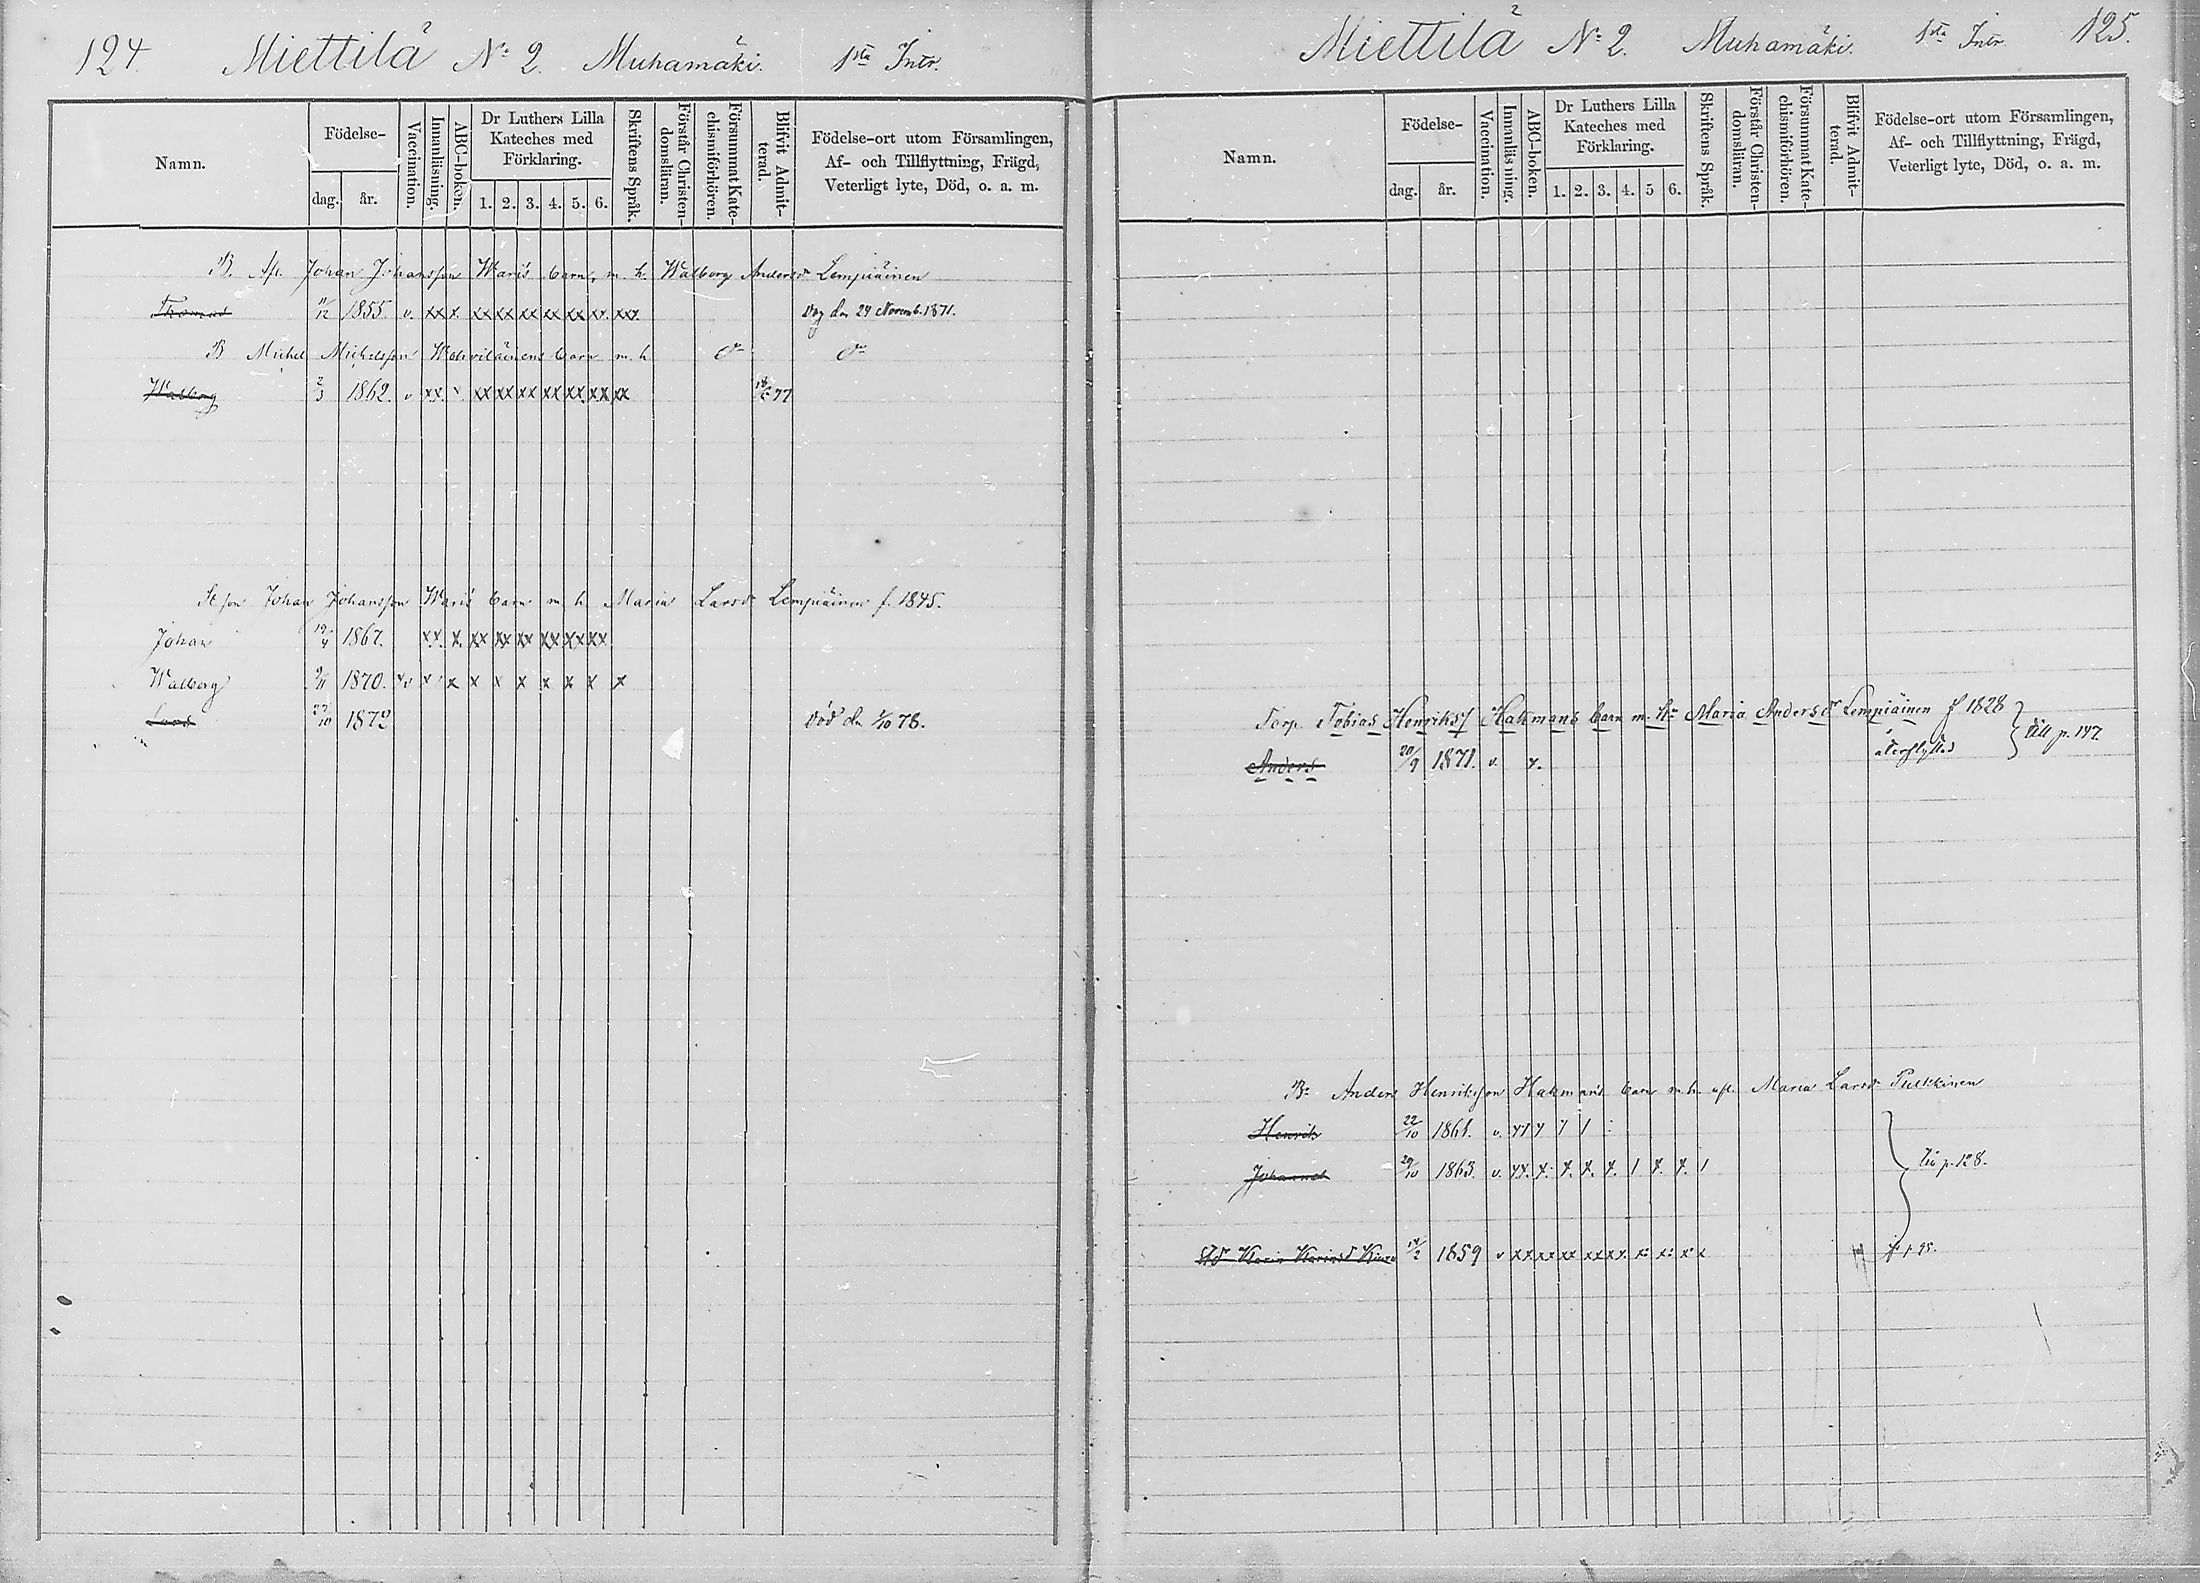 124. Miettilä No 2. Muhamäki. 1sta Intr.
Namn.
Födelse-
dag. år.
Vaccination.
Innanläsning.
ABC-boken.
Dr Luthers Lilla Kateches med Förklaring.
1. 2. 3. 4. 5. 6.
Skriftens Språk.
Förstår Christendomsläran.
Försummat Katechismiförhören.
Blifvit Admitterad.
Födelse-ort utom Församlingen, Af- och Tillflyttning, Frägd, Veterligt lyte, Död, o. a. m.
B. Afl. Johan Johansson Waris barn, m. h. Walborg Andersdr Lempiäinen
Thomas 11/12 1855. v. xx x xx xx xx xx xx xx. xxx. den 29 Novemb. 1871.
B Michel Michelsson barn m. h. do do
Walborg 2/3 1862. v xx. x. xx xx xx xx xx xx xx 77
Johan Johansson Waris barn m. h. Maria Larsdr Lempiäinen f. 1845.
Johan 19/4 1867. xx. x. xx xx xx xx xx xx
Walborg 9/11 1870. x x x x x x x x x
Lars 27/10 1872 Död den 5/10 78.
Miettilä No 2. Muhamäki. 1sta Intr. 125.
Namn.
Födelse-
dag. år.
Vaccination.
Innanläsning.
ABC-boken.
Dr Luthers Lilla Kateches med Förklaring.
1. 2. 3. 4. 5 6.
Skriftens Språk.
Förstår Christendomsläran.
Försummat Katechismiförhören.
Blifvit Admitterad.
Födelse-ort utom Församlingen, Af- och Tillflyttning, Frägd, Veterligt lyte, Död, o. a. m.
Torp. Tobias Henrikss Hakmans barn m. hu Maria Andersdr Lempiäinen f 1828
Anders 20/9 1871. v. x. återflyttad till p. 147.
Bo Anders Henriksson Hakmans barn m. h. afl. Maria Larsdr Pulkkinen
Henrik 22/10 1861. v.
Johannes 29/10 1863. v. xx. x. x. x. x. 1 x. x. 1 till p. 128.
Maria 14/2 1859 v xx xx xx xx xx. x: x: x x p. 95.